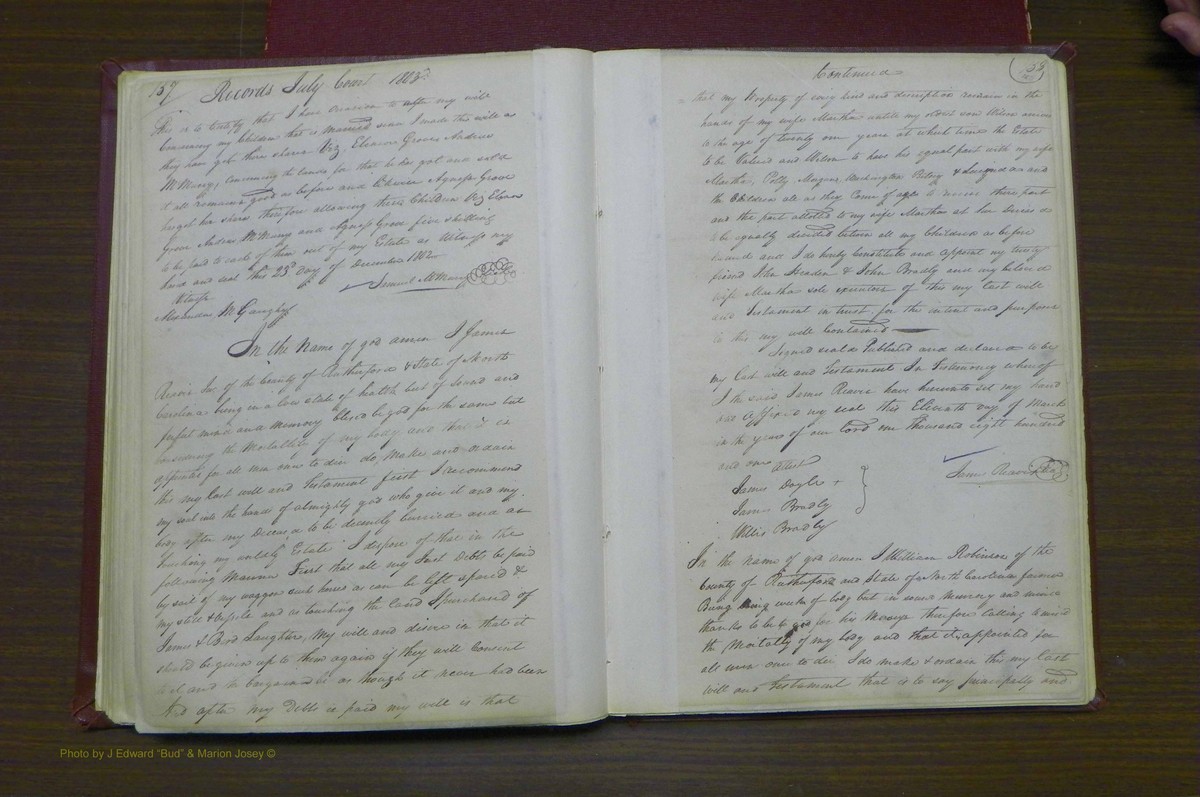 157 Records July Court 1803
This is to Certify that I have occasion to alter my will
Concerning my Children that is married since I made this will as
they have got there shares Viz Eleanor Groves Andrew
McMurry, concerning the lands for that he has got and sold
it all remains good as before and likewise Agness Grove
has got her share therefore allowing these Children Viz Elenor
Grove Andrew McMurry and Agness Grove five shilling
to be paid to each of them out of my Estate as Witness my
hand and seal this 23d day of December 1802
Samuel McMurry
Alexander McGaughy
In the Name of god amen I James
Reavis Sr. of the County of Rutherford & State of North
Carolina being in a low state of health but of sound and
perfect mind and memory blessed be god for the same but
considering the Mortallity of my body and that it is
appointed for all men once to die do, make and ordain
this my last will and testament first I recommend
my soul into the hands of almighty god who give it and my
body after my Decease to be decently burried and as
touching my worldly Estate I dispose of that in the
following Manner First that all my Just Debts be paid
by sail of my waggon such horses as can be left spared &
my still & and as touching the land I purchased of
James & Slaughter, My will and desire is that it
should be given up to them again if they will Consent
to it and the bargain be as though it never had been
And after my debts is paid my will is that
Continued 158
that my Property of every kind and description remain in the
hands of my wife Martha until my son Wilson arrives
to the age of twenty one years at which time the Estate
to be Valued and Wilson to have his equal part with my wife
Martha, Polly Washington & and
the Children all as they Come of age to receive there part
and the part allotted to my wife Martha at her Decease
to be equally divided between all my Children as before
named and I do hereby Constitute and appoint my trusty
friend John Headen & John Bradly and my beloved
wife Martha sole executors of this my last will
and Testament in trust for the intent and purpose
in this my will Contained
Signed seald Published and declared to be
my last will and testament In Testimony whereof
I the said James Reavis have hereunto set my hand
and Affixed my seal this Eleventh day of March
in the year of our lord one thousand eight hundred
and one attest
James Doyle +
James Bradly
Willis Bradly
James Reavis
In the name of god amen I William Robinson of the
County of Rutherford and State of North Carolina farmer
Being being weak of body but in sound memory and mind
thanks to be to god for his Mercys therefore calling to mind
the Mortality of my body and that it is appointed for
all men once to die I do make & ordain this my last
will and testament that is to say principally and
Photo by J Edward "Bud" & Marion Josey ©